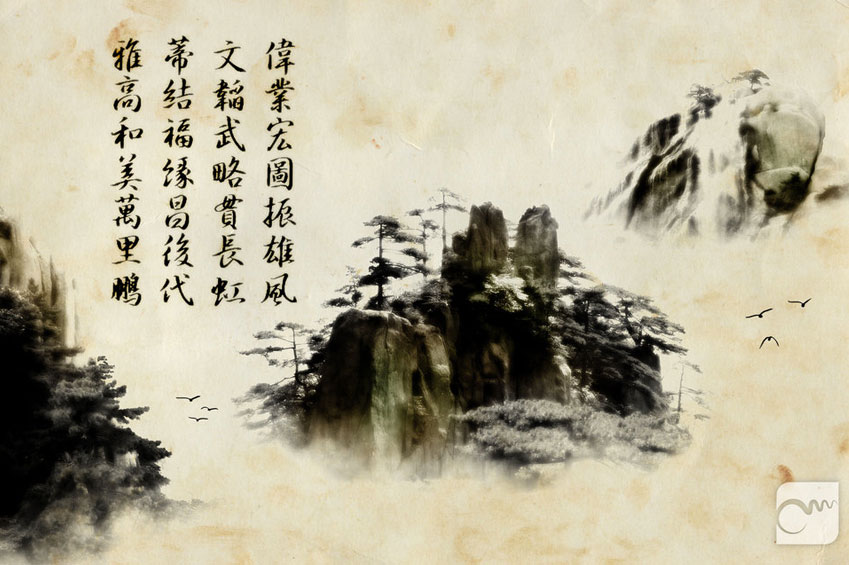 偉業宏圖振雄風
文韜武略貫長虹
蒂結福緣昌後代
雅高和美萬里鵬